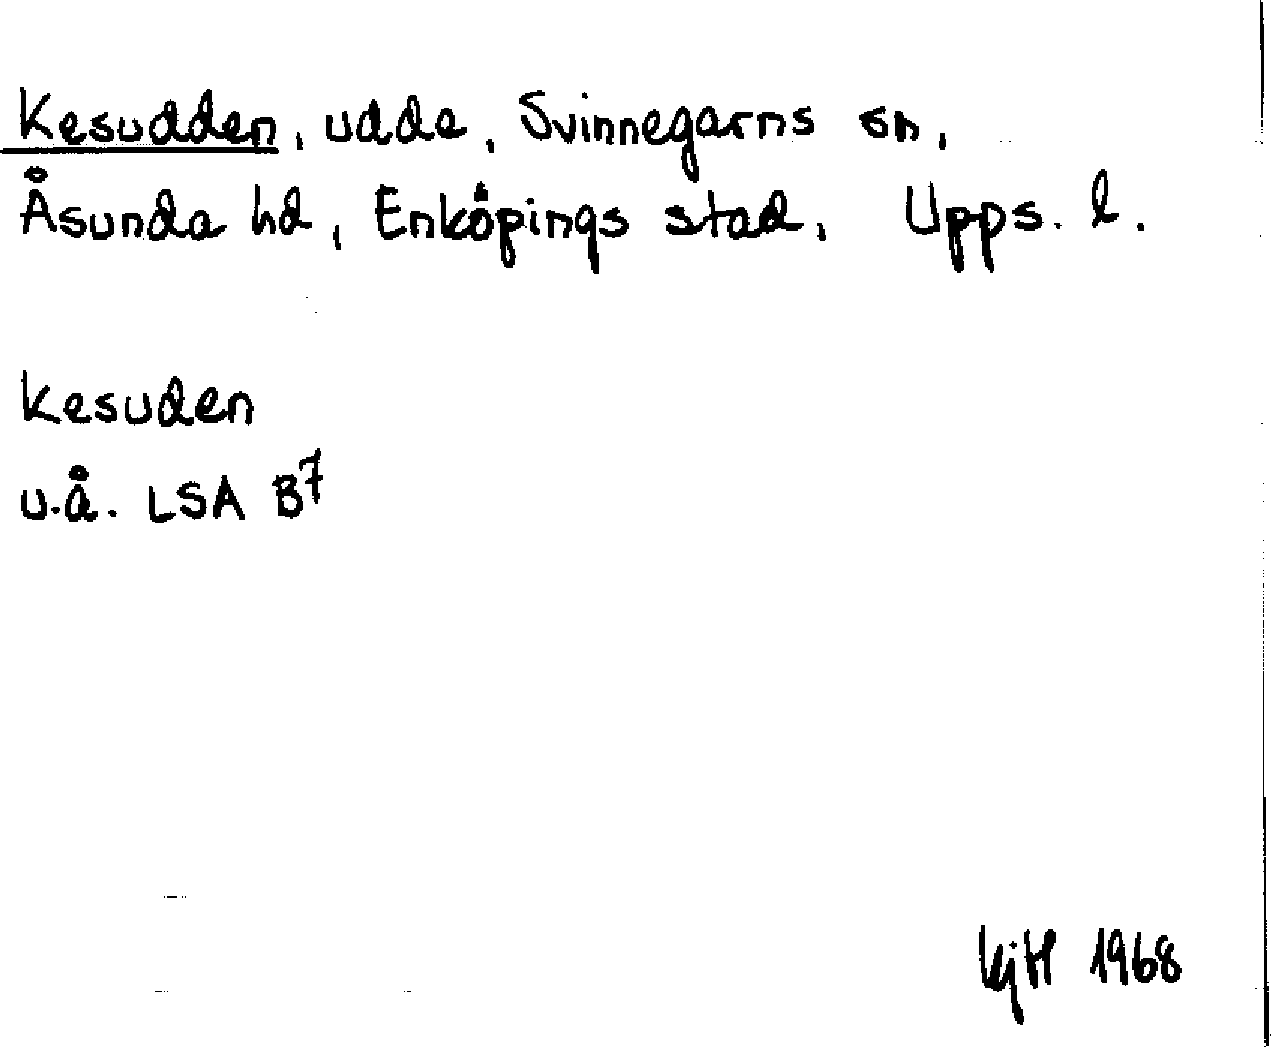 Kesudden, udde, Svinnegarns sn,
Åsunda hd, Enköpings stad, Upps. l.
Kesuden
u.å. LSA B7
KjH 1968